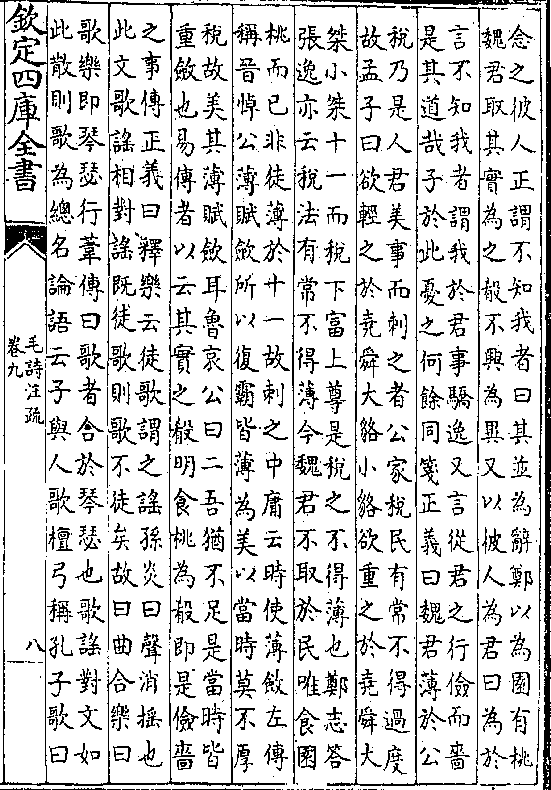 念之彼人正謂不知我者曰其並為辭鄭以為園有桃
魏君取其實為之殽不興為異又以彼人為君曰為於
言不知我者謂我於君事驕逸又言從君之行儉而嗇
是其道哉子於此憂之何餘同箋正義曰魏君薄於公
稅乃是人君美事而刺之者公家稅民有常不得過度
故孟子曰欲輕之於堯舜大貉小貉欲重之於堯舜大
桀小桀十一而稅下富上尊是稅之不得薄也鄭志答
張逸亦云稅法有常不得薄今魏君不取於民唯食園
桃而已非徒薄於十一故刺之中庸云時使薄斂左傳
稱晉悼公薄賦斂所以復霸皆薄為美以當時莫不厚
稅故美其薄賦斂耳魯哀公曰二吾猶不足是當時皆
重斂也易傳者以云其實之殽明食桃為殽即是儉嗇
之事傳正義曰釋樂云徒歌謂之謠孫炎曰聲消搖也
此文歌謠相對謠既徒歌則歌不徒矣故曰曲合樂曰
歌樂即琴瑟行葦傳曰歌者合於琴瑟也歌謠對文如
此散則歌為總名論語云子與人歌檀弓稱孔子歌曰
欽定四庫全書
毛詩注疏
卷九
八